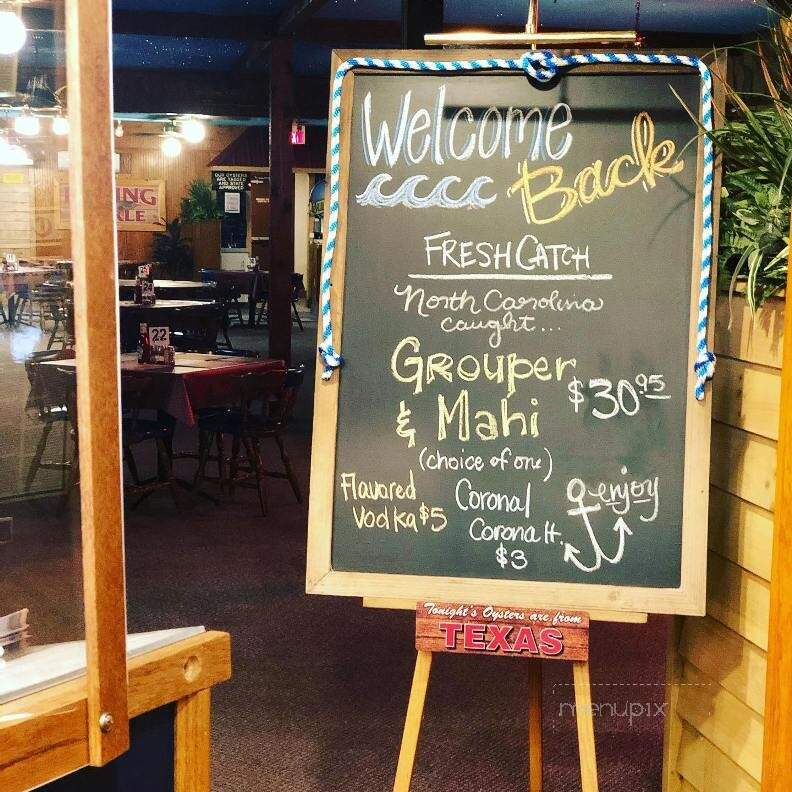 Welcome
Back
FRESH CATCH
North Carolina
caught...
GROUPER
& Mahi
$30.95
(choice of one)
Flavored
Vodka $5
Coronal
Corona lt.
$3
enjoy
Tonight's Oysters are from
TEXAS
OUR OYSTERS
ARE TAGGED
AND STATE
APPROVED
22
menupix